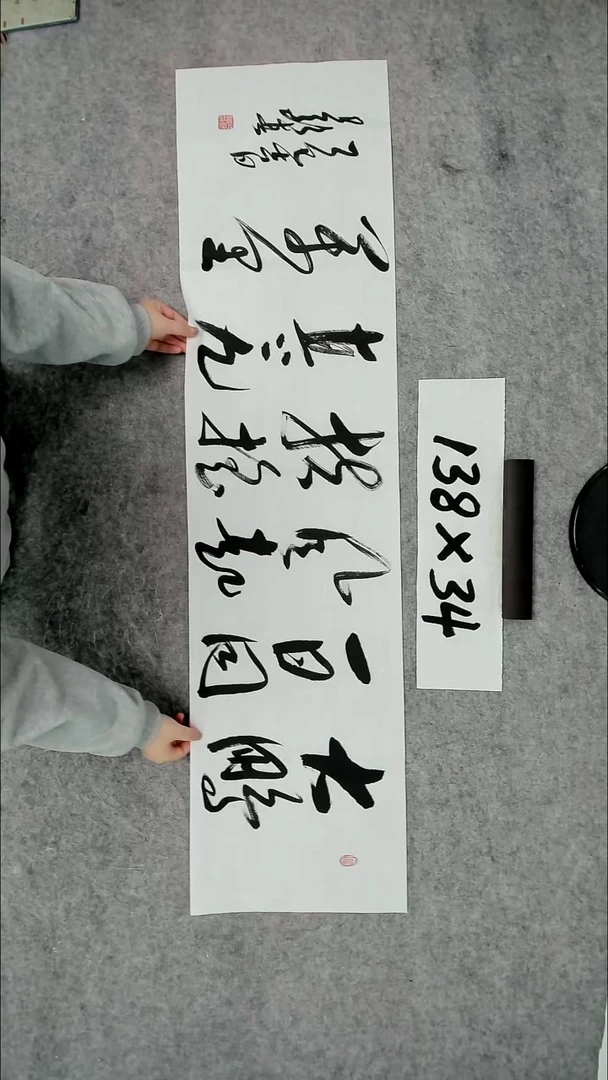 大鵬
一日同
風起
扶摇
直上九
萬里
138×34